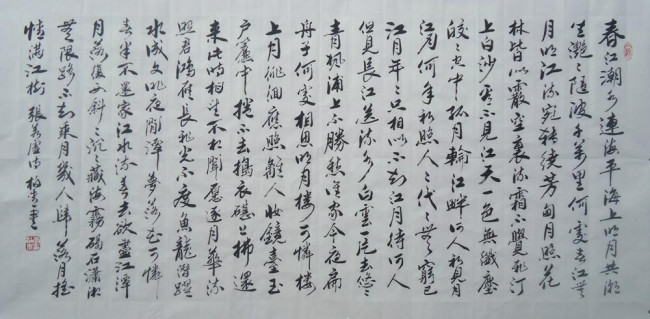 春江潮水連海平海上明月共潮
生灩灩隨波千萬里何處春江無
月明江流宛轉繞芳甸月照花
林皆似霰空裏流霜不覺飛汀
上白沙看不見江天一色無纖塵
皎皎空中孤月輪江畔何人初見月
江月何年初照人人生代代無窮已
江月年年只相似不知江月待何人
但見長江送流水白雲一片去悠悠
青楓浦上不勝愁誰家今夜扁
舟子何處相思明月樓可憐樓
上月徘徊應照離人妝鏡臺玉
戶簾中捲不去搗衣砧上拂還
來此時相望不相聞願逐月華流
照君鴻雁長飛光不度魚龍潛躍
水成文昨夜閒潭夢落花可憐
春半不還家江水流春去欲盡江潭
月落復西斜斜沉沉藏海霧碣石瀟湘
無限路不知乘月幾人歸落月搖
情滿江樹 張若虛詩